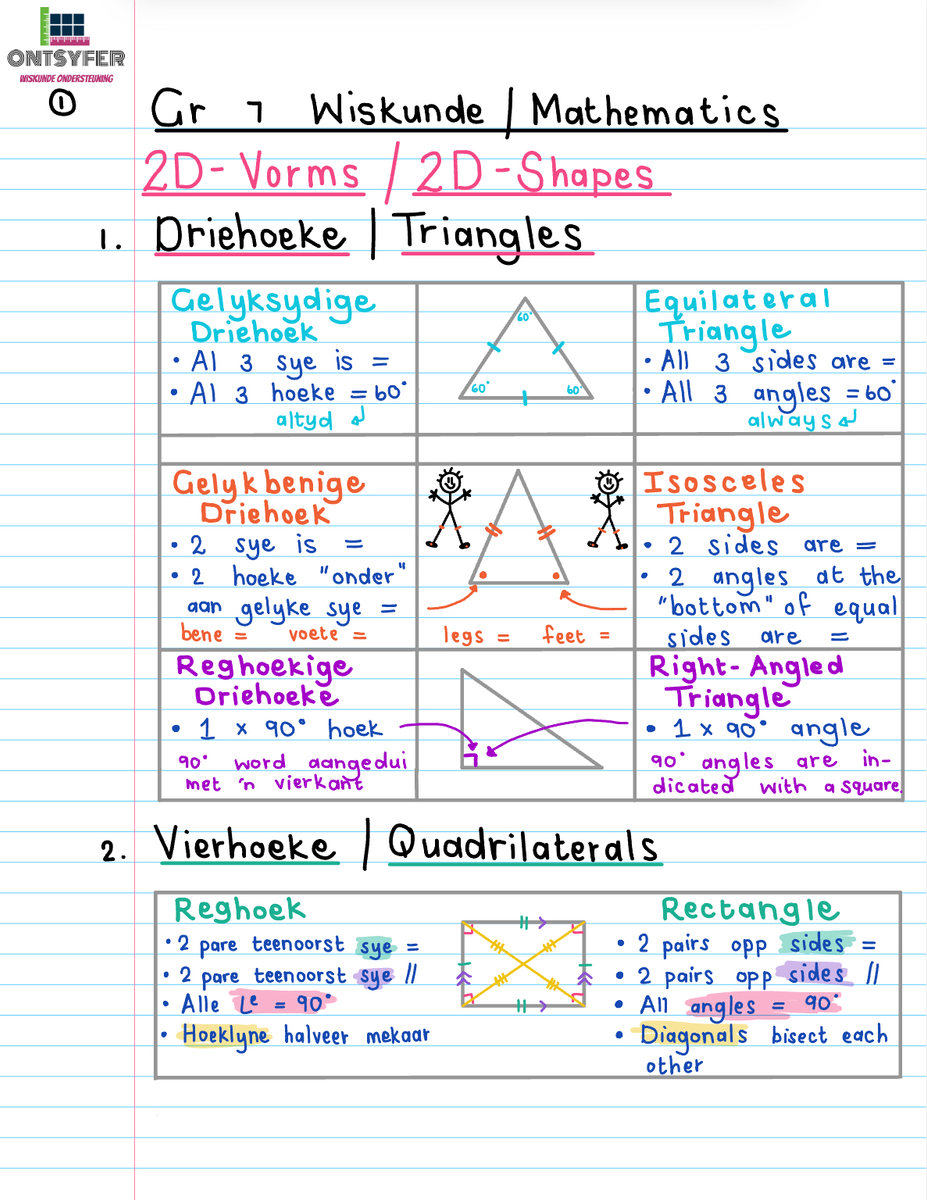 ONTSYFER
WISKUNDE ONDERSTEUNING
1
Gr 7 Wiskunde / Mathematics
2D-Vorms / 2D-Shapes
1. Driehoeke | Triangles
Gelyksydige
Driehoek
• Al 3 sye is =
• Al 3 hoeke = 60°
altyd ↲
60°
60°
60°
Equilateral
Triangle
• All 3 sides are =
• All 3 angles = 60°
always ↲
Gelykbenige
Driehoek
• 2 sye is =
• 2 hoeke "onder"
aan gelyke sye =
bene = voete =
legs = feet =
Isosceles
Triangle
• 2 sides are =
• 2 angles at the
"bottom" of equal
sides are =
Reghoekige
Driehoeke
• 1 x 90° hoek
90° word aangedui
met 'n vierkant
Right-Angled
Triangle
• 1 x 90° angle
90° angles are in-
dicated with a square.
2. Vierhoeke / Quadrilaterals
Reghoek
• 2 pare teenoorst sye =
• 2 pare teenoorst sye //
• Alle Lᵉ = 90°
• Hoeklyne halveer mekaar
Rectangle
• 2 pairs opp sides =
• 2 pairs opp sides //
• All angles = 90°
• Diagonals bisect each
other